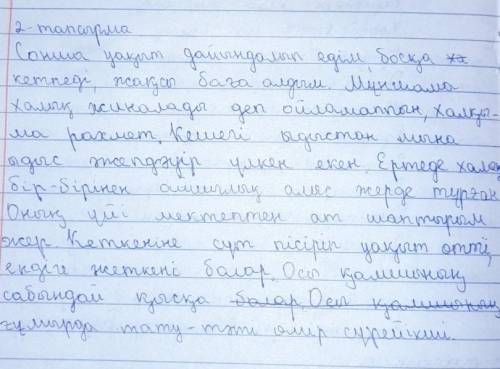 2-тапсырма
Сонша уақыт дайындалып едім, босқа
кетпеді, жақсы баға алдым. Мұншама
халық жиналады деп ойламаппын, халқы-
ма рахмет. Кешегі ыдыстан мына
ыдыс әжепдәуір үлкен екен. Ертеде халық
бір-бірінен алшылық алыс жерде тұрған
Оның үйі мектептен ат шаптырым
жер. Кеткеніне сүт пісірім уақыт өтті,
ендігі жеткені болар. Осы қамшының
сабындай қысқа болар. Осы қамшының
ғұмырда тату-тәтті өмір сүрейікші.